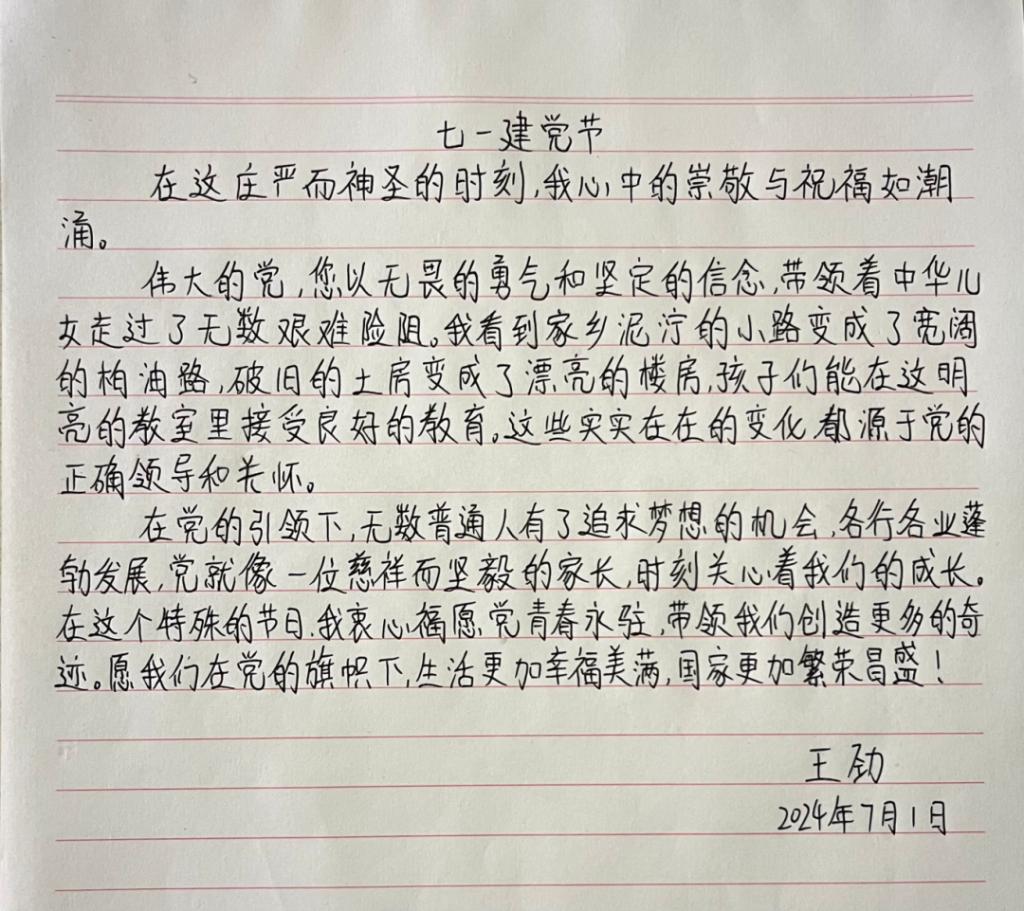 七一建党节
在这庄严而神圣的时刻,我心中的崇敬与祝福如潮
涌。
伟大的党,您以无畏的勇气和坚定的信念,带领着中华儿
女走过了无数艰难险阻。我看到家乡泥泞的小路变成了宽阔
的柏油路,破旧的土房变成了漂亮的楼房,孩子们能在这明
亮的教室里接受良好的教育。这些实实在在的变化都源于党的
正确领导和关怀。
在党的引领下,无数普通人有了追求梦想的机会,各行各业蓬
勃发展,党就像一位慈祥而坚毅的家长,时刻关心着我们的成长。
在这个特殊的节日,我衷心福愿党青春永驻,带领我们创造更多的奇
迹。愿我们在党的旗帜下,生活更加幸福美满,国家更加繁荣昌盛!
王劲
2024年7月1日